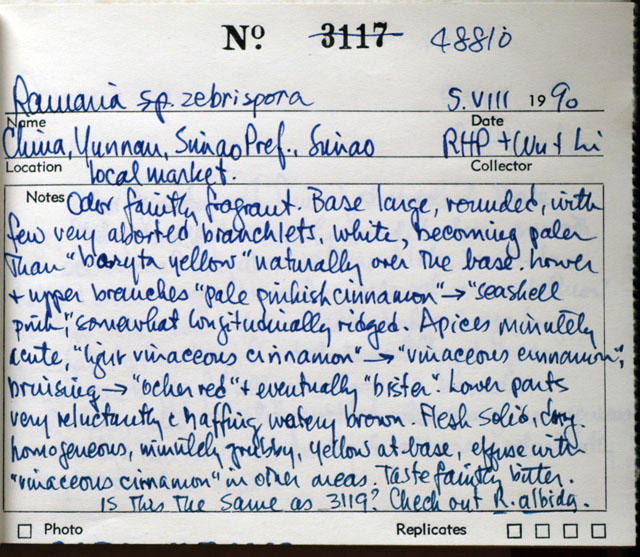 Nº 3117 48810
Ramaria sp. zebrispora 5.VIII 1990
Name Date
China, Yunnan, Simao Pref., Simao RHP + Wu + Li
Location local market. Collector
Notes Odor faintly fragrant. Base large, rounded, with
few very aborted branchlets, white, becoming paler
than "baryta yellow" naturally over the base. Lower
+ upper branches "pale pinkish cinnamon" → "seashell
pink", somewhat longitudinally ridged. Apices minutely
acute, "light vinaceous cinnamon" → "vinaceous cinnamon",
bruising → "ocher red" + eventually "bister". Lower parts
very reluctantly chaffing watery brown. Flesh solid, dry.
homogeneous, minutely grubby, yellow at base, effuse with
"vinaceous cinnamon" in other areas. Taste faintly bitter.
Is this the same as 3119? Check out R. albida.
Photo Replicates